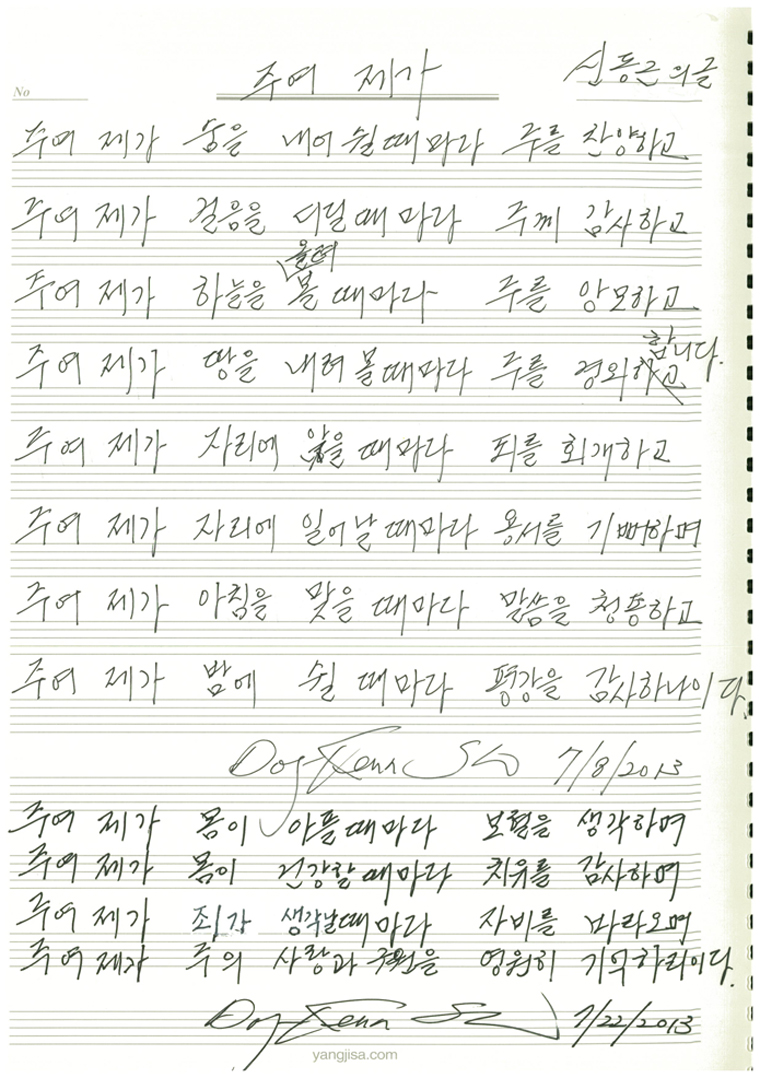 주여 제가
신동근의 글
No
주여 제가 숨을 내어 쉴때마다 주를 찬양하고
주여 제가 걸음을 디딜때마다 주께 감사하고
올려
주여 제가 하늘을 볼때마다 주를 앙모하고
합니다.
주여 제가 땅을 내려 볼때마다 주를 경외하고
주여 제가 자리에 앉을 때마다 죄를 회개하고
주여 제가 자리에 일어날때마다 용서를 기뻐하며
주여 제가 아침을 맞을 때마다 말씀을 청종하고
주여 제가 밤에 쉴 때마다 평강을 감사하나이다.
7/8/2013
주여 제가 몸이 아플때마다 보혈을 생각하며
주여 제가 몸이 건강할때마다 치유를 감사하며
주여 제가 죄가 생각날때마다 자비를 바라오며
주여 제가 주의 사랑과 구원을 영원히 기억하리이다.
7/22/2013
yangjisa.com